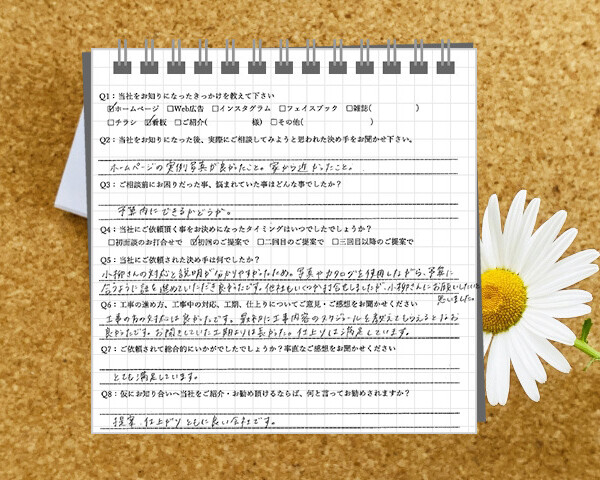 Q1：当社をお知りになったきっかけを教えて下さい
☑ホームページ　□Web広告　□インスタグラム　□フェイスブック　□雑誌(　　　　　)
□チラシ　☑看板　□ご紹介(　　　　　様)　□その他(　　　　　　　)
Q2：当社をお知りになった後、実際にご相談してみようと思われた決め手をお聞かせ下さい。
ホームページの実例写真が良かったこと。家から近かったこと。
Q3：ご相談前にお困りだった事、悩まれていた事はどんな事でしたか？
予算内にできるかどうか。
Q4：当社にご依頼頂く事をお決めになったタイミングはいつでしたでしょうか？
□初面談のお打合せで　☑初回のご提案で　□二回目のご提案で　□三回目以降のご提案で
Q5：当社に依頼された決め手は何でしたか？
小柳さんの対応と説明が分かりやすかったため。写真やカタログを使用しながら、予算に
合うように話を進めていただき良かったです。他社もいくつか打合せしましたが、小柳さんにお願いしたいと
思いました。
Q6：工事の進め方、工事中の対応、工期、仕上りについてご意見・ご感想をお聞かせください
工事の方の対応は良かったです。最初に工事内容のスケジュールを教えてもらえるとなお
良かったです。お聞きしていた工期よりは長かった。仕上りは満足しています。
Q7：ご依頼されて総合的にいかがでしたでしょうか？率直なご感想をお聞かせください
とても満足しています。
Q8：仮にお知り合いへ当社をご紹介・お勧め頂けるならば、何と言ってお勧めされますか？
提案、仕上がりともに良い会社です。